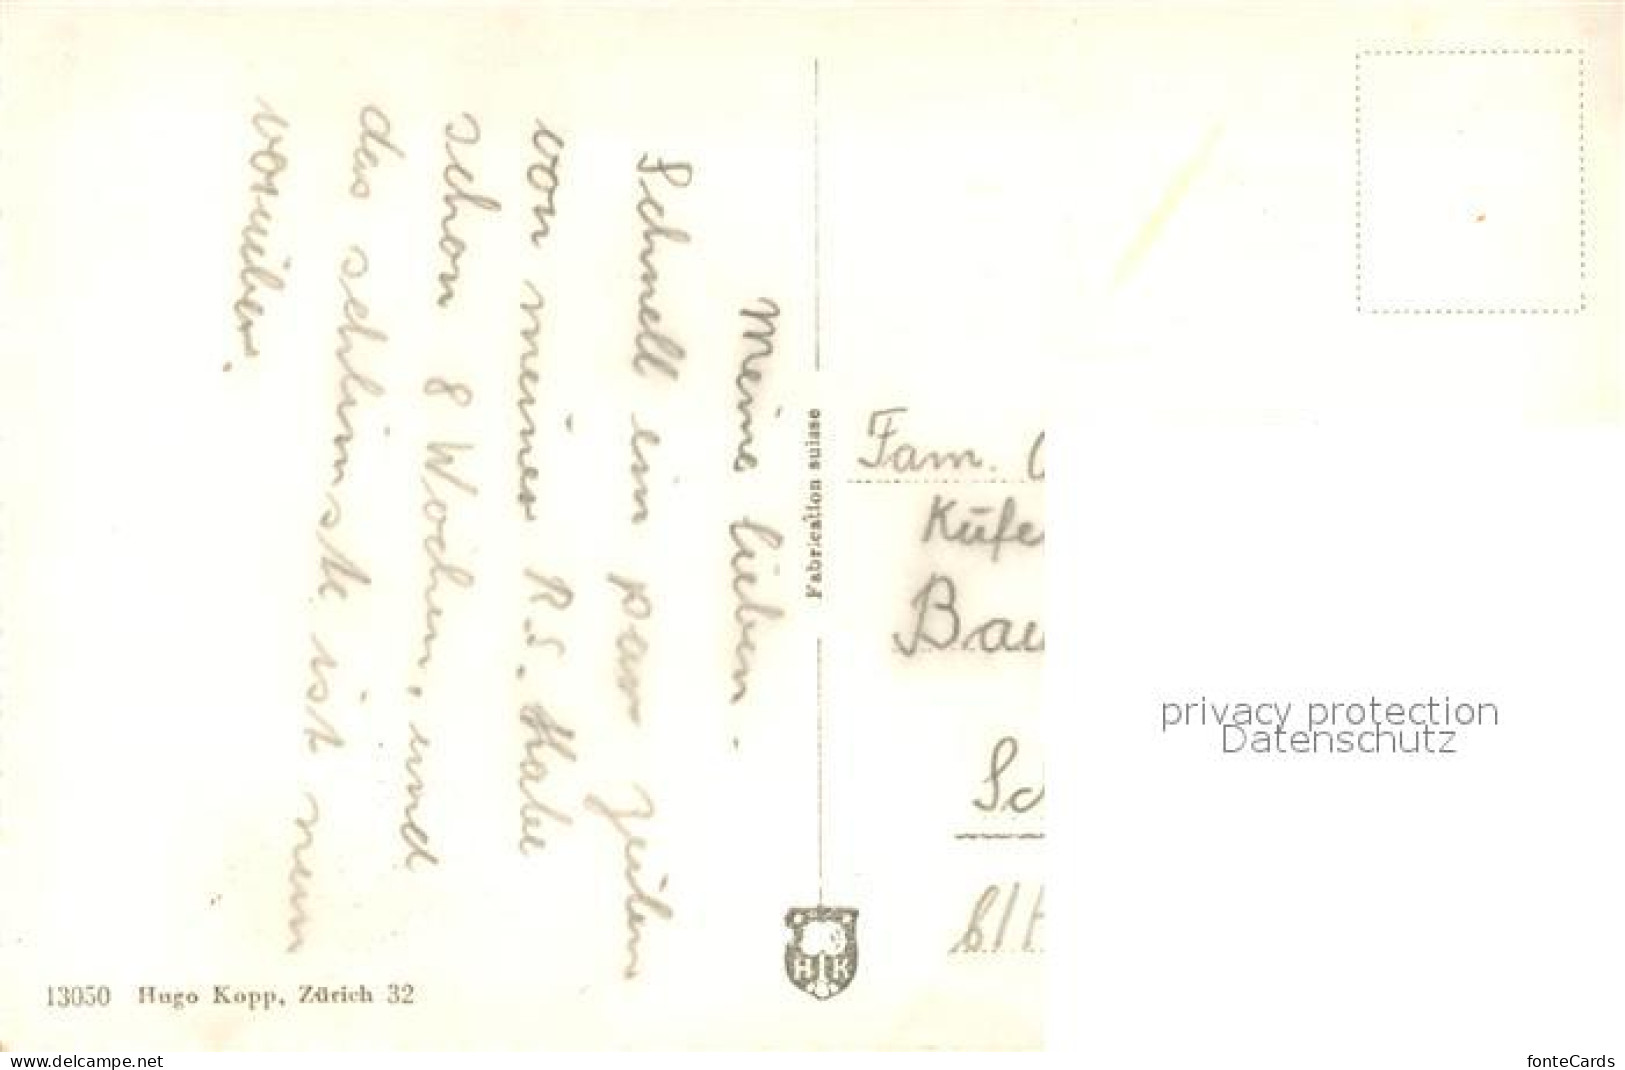 Meine lieben.
Schnell ein par Zeilen
von meiner R.S. Habe
schon 8 Wochen, und
das schlimste ist nun
vorüber.
Fabrication suisse
Fam.
Küfe
Bau
Sc
b/
H K
13050 Hugo Kopp, Zürich 32
privacy protection
Datenschutz
www.delcampe.net
fonteCards